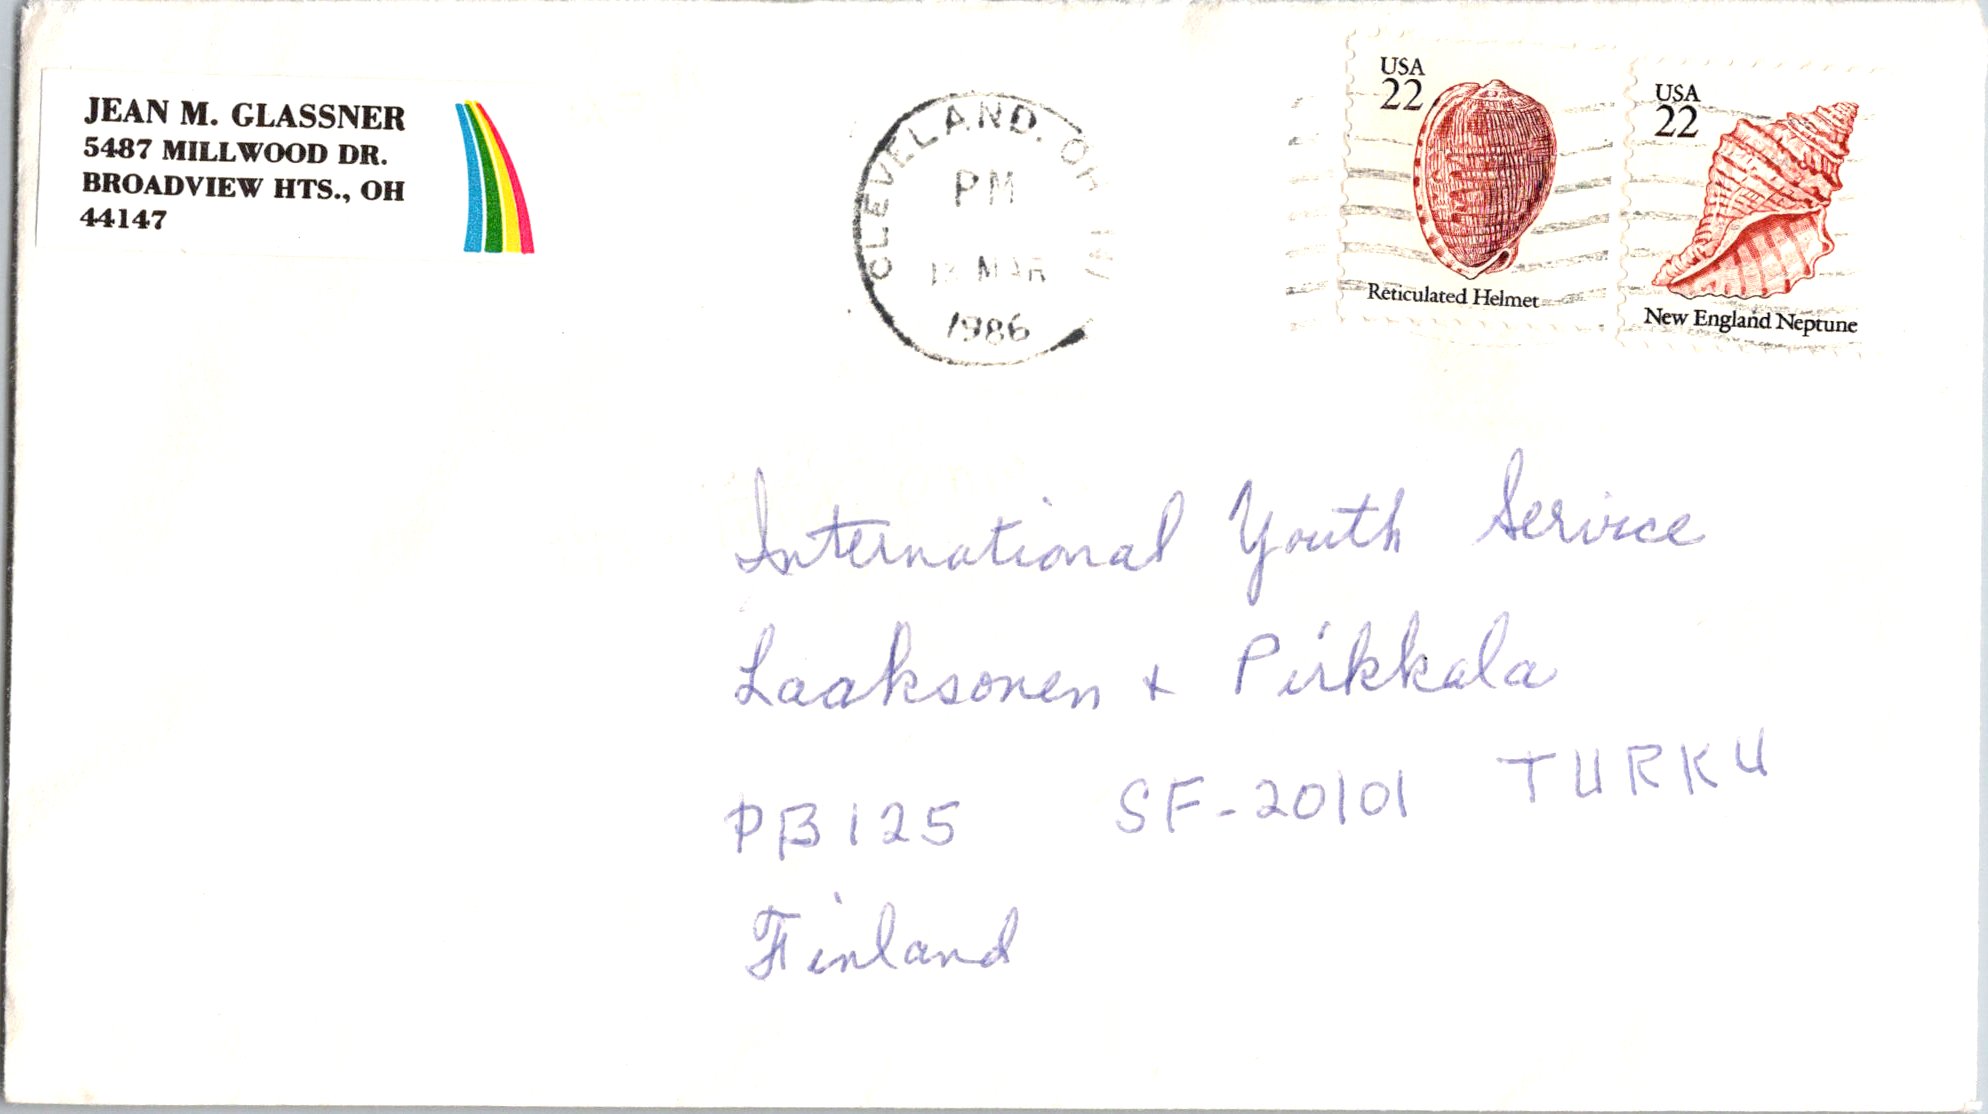 JEAN M. GLASSNER
5487 MILLWOOD DR.
BROADVIEW HTS., OH
44147
CLEVELAND, OH
PM
MAR
1986
USA
22
Reticulated Helmet
USA
22
New England Neptune
International Youth Service
Laaksonen + Pirkkala
PB 125 SF-20101 TURKU
Finland